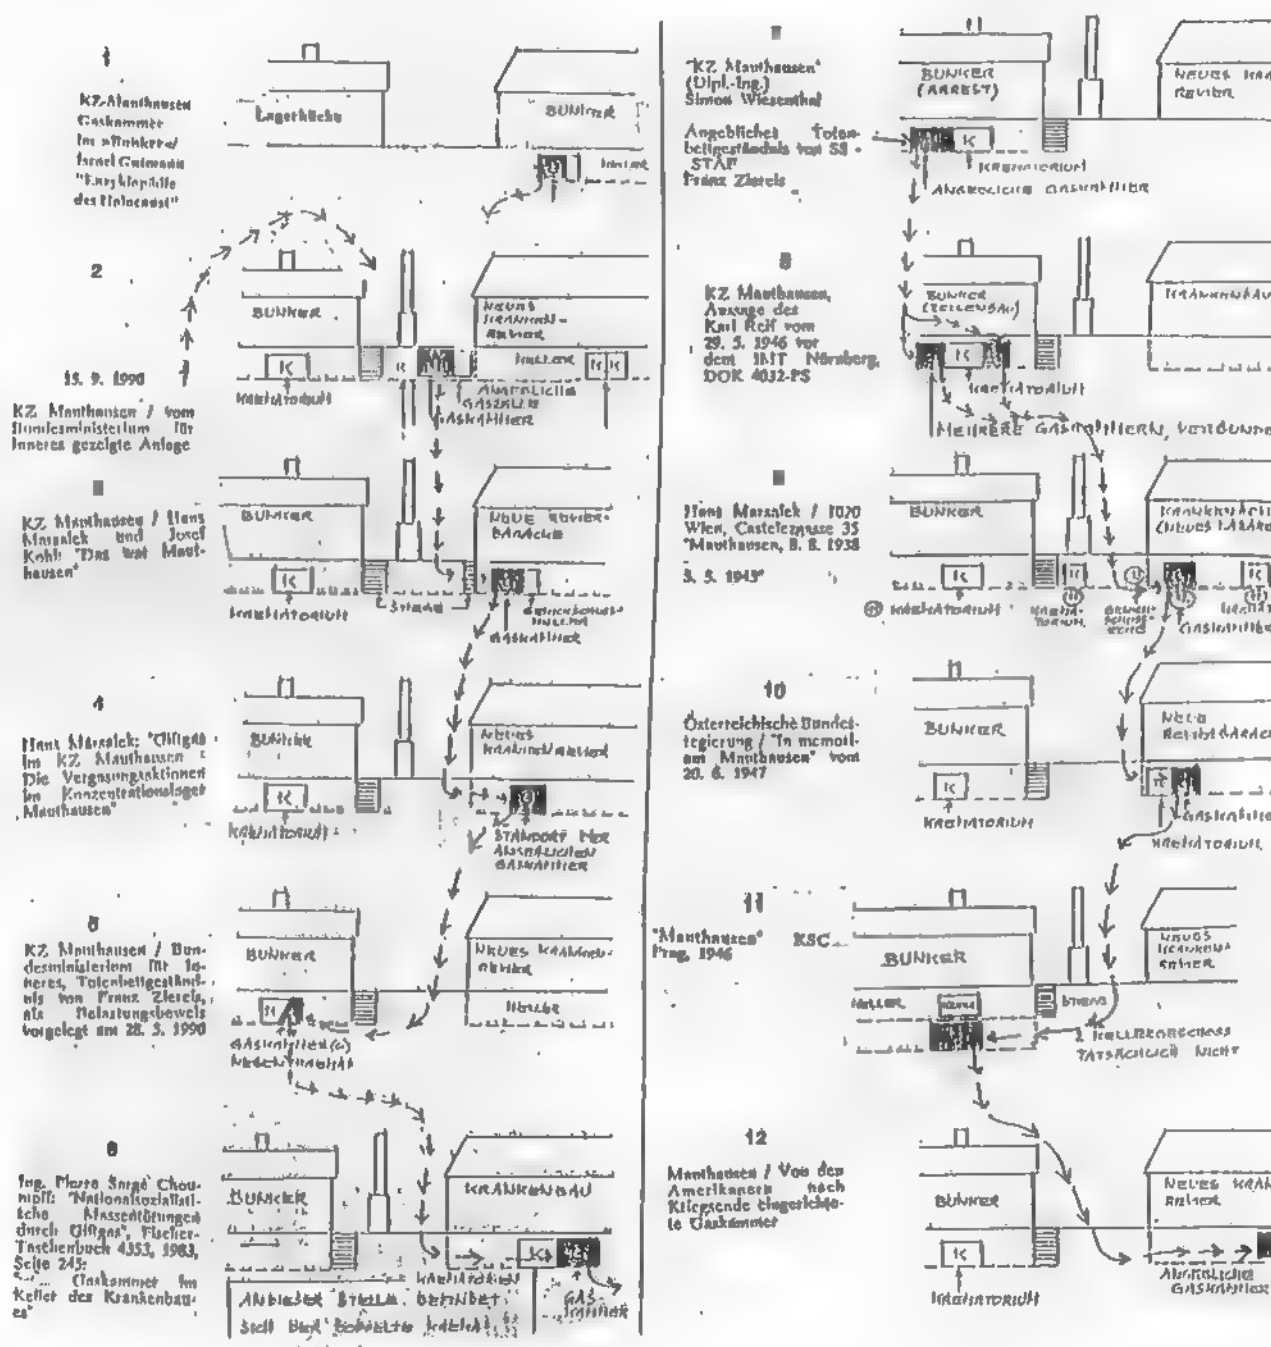 1
KZ-Mauthausen
Gaskammer
im »Bunker«/
Israel Gutmann
"Enzyklopädie
des Holocaust"
Lagerküche
BUNKER
2
15. 9. 1990
KZ Mauthausen / vom
Bundesministerium für
Inneres gezeigte Anlage
BUNKER
NEUES
KRANKEN-
REVIER
K
K
KELLER
K K
KREMATORIUM
ANGEBLICHE
GASZELLE
GASKAMMER
KZ Mauthausen / Hans
Marsalek und Josef
Kohl: "Das war Maut-
hausen"
BUNKER
NEUE REVIER-
BARACKE
K
KREMATORIUM
STIEGE
GASKAMMER
4
Hans Marsalek: "Giftgas
im KZ Mauthausen
Die Vergasungsaktionen
im Konzentrationslager
Mauthausen"
BUNKER
NEUES
KRANKENREVIER
K
KREMATORIUM
STANDORT DER
ANGEBLICHEN
GASKAMMER
5
KZ Mauthausen / Bun-
desministerium für In-
neres, Totenbettgeständ-
nis von Franz Ziereis,
als Belastungsbeweis
vorgelegt am 28. 5. 1990
BUNKER
NEUES KRANKEN-
REVIER
K
KELLER
GASKAMMER(N)
NEBEN KREMAT
6
Ing. Pierre Serge Chou-
moff: "Nationalsozialisti-
sche Massentötungen
durch Giftgas", Fischer-
Taschenbuch 4353, 1983,
Seite 245:
Gaskammer im
Keller des Krankenbau-
es"
BUNKER
KRANKENBAU
K
KREMATORIEN
AN DIESER STELLE BEFINDET
SICH DER DOPPELTE
GAS-
KAMMER
"KZ Mauthausen"
(Dipl.-Ing.)
Simon Wiesenthal
Angebliches Toten-
bettgeständnis von SS -
STAF
Franz Ziereis
BUNKER
(ARREST)
NEUES
REVIER
K
KREMATORIUM
ANGEBLICHE GASKAMMER
8
KZ Mauthausen,
Aussage des
Karl Reif vom
29. 5. 1946 vor
dem IMT Nürnberg,
DOK 4032-PS
BUNKER
(ZELLENBAU)
KRANKENBAU
K
KREMATORIUM
MEHRERE GASKAMMERN,
Hans Marsalek / 1020
Wien, Castelezgasse 35
"Mauthausen, 8. 8. 1938
5. 5. 1945"
BUNKER
K
K
KREMATORIUM
KREMA-
TORIUM
GASKAMMER
10
Österreichische Bundes-
regierung / "In memori-
am Mauthausen" vom
20. 6. 1947
BUNKER
NEUE
K
K
KREMATORIUM
GASKAMMER
KREMATORIUM
11
"Mauthausen" KSC
Prag, 1946
BUNKER
NEUES
KRANKEN
REVIER
KELLER
STIEGE
2 KELLERGESCHOSS
TATSÄCHLICH NICHT
12
Mauthausen / Von den
Amerikanern nach
Kriegsende eingerichte-
te Gaskammer
BUNKER
NEUES
REVIER
K
KREMATORIUM
ANGEBLICHE
GASKAMMER